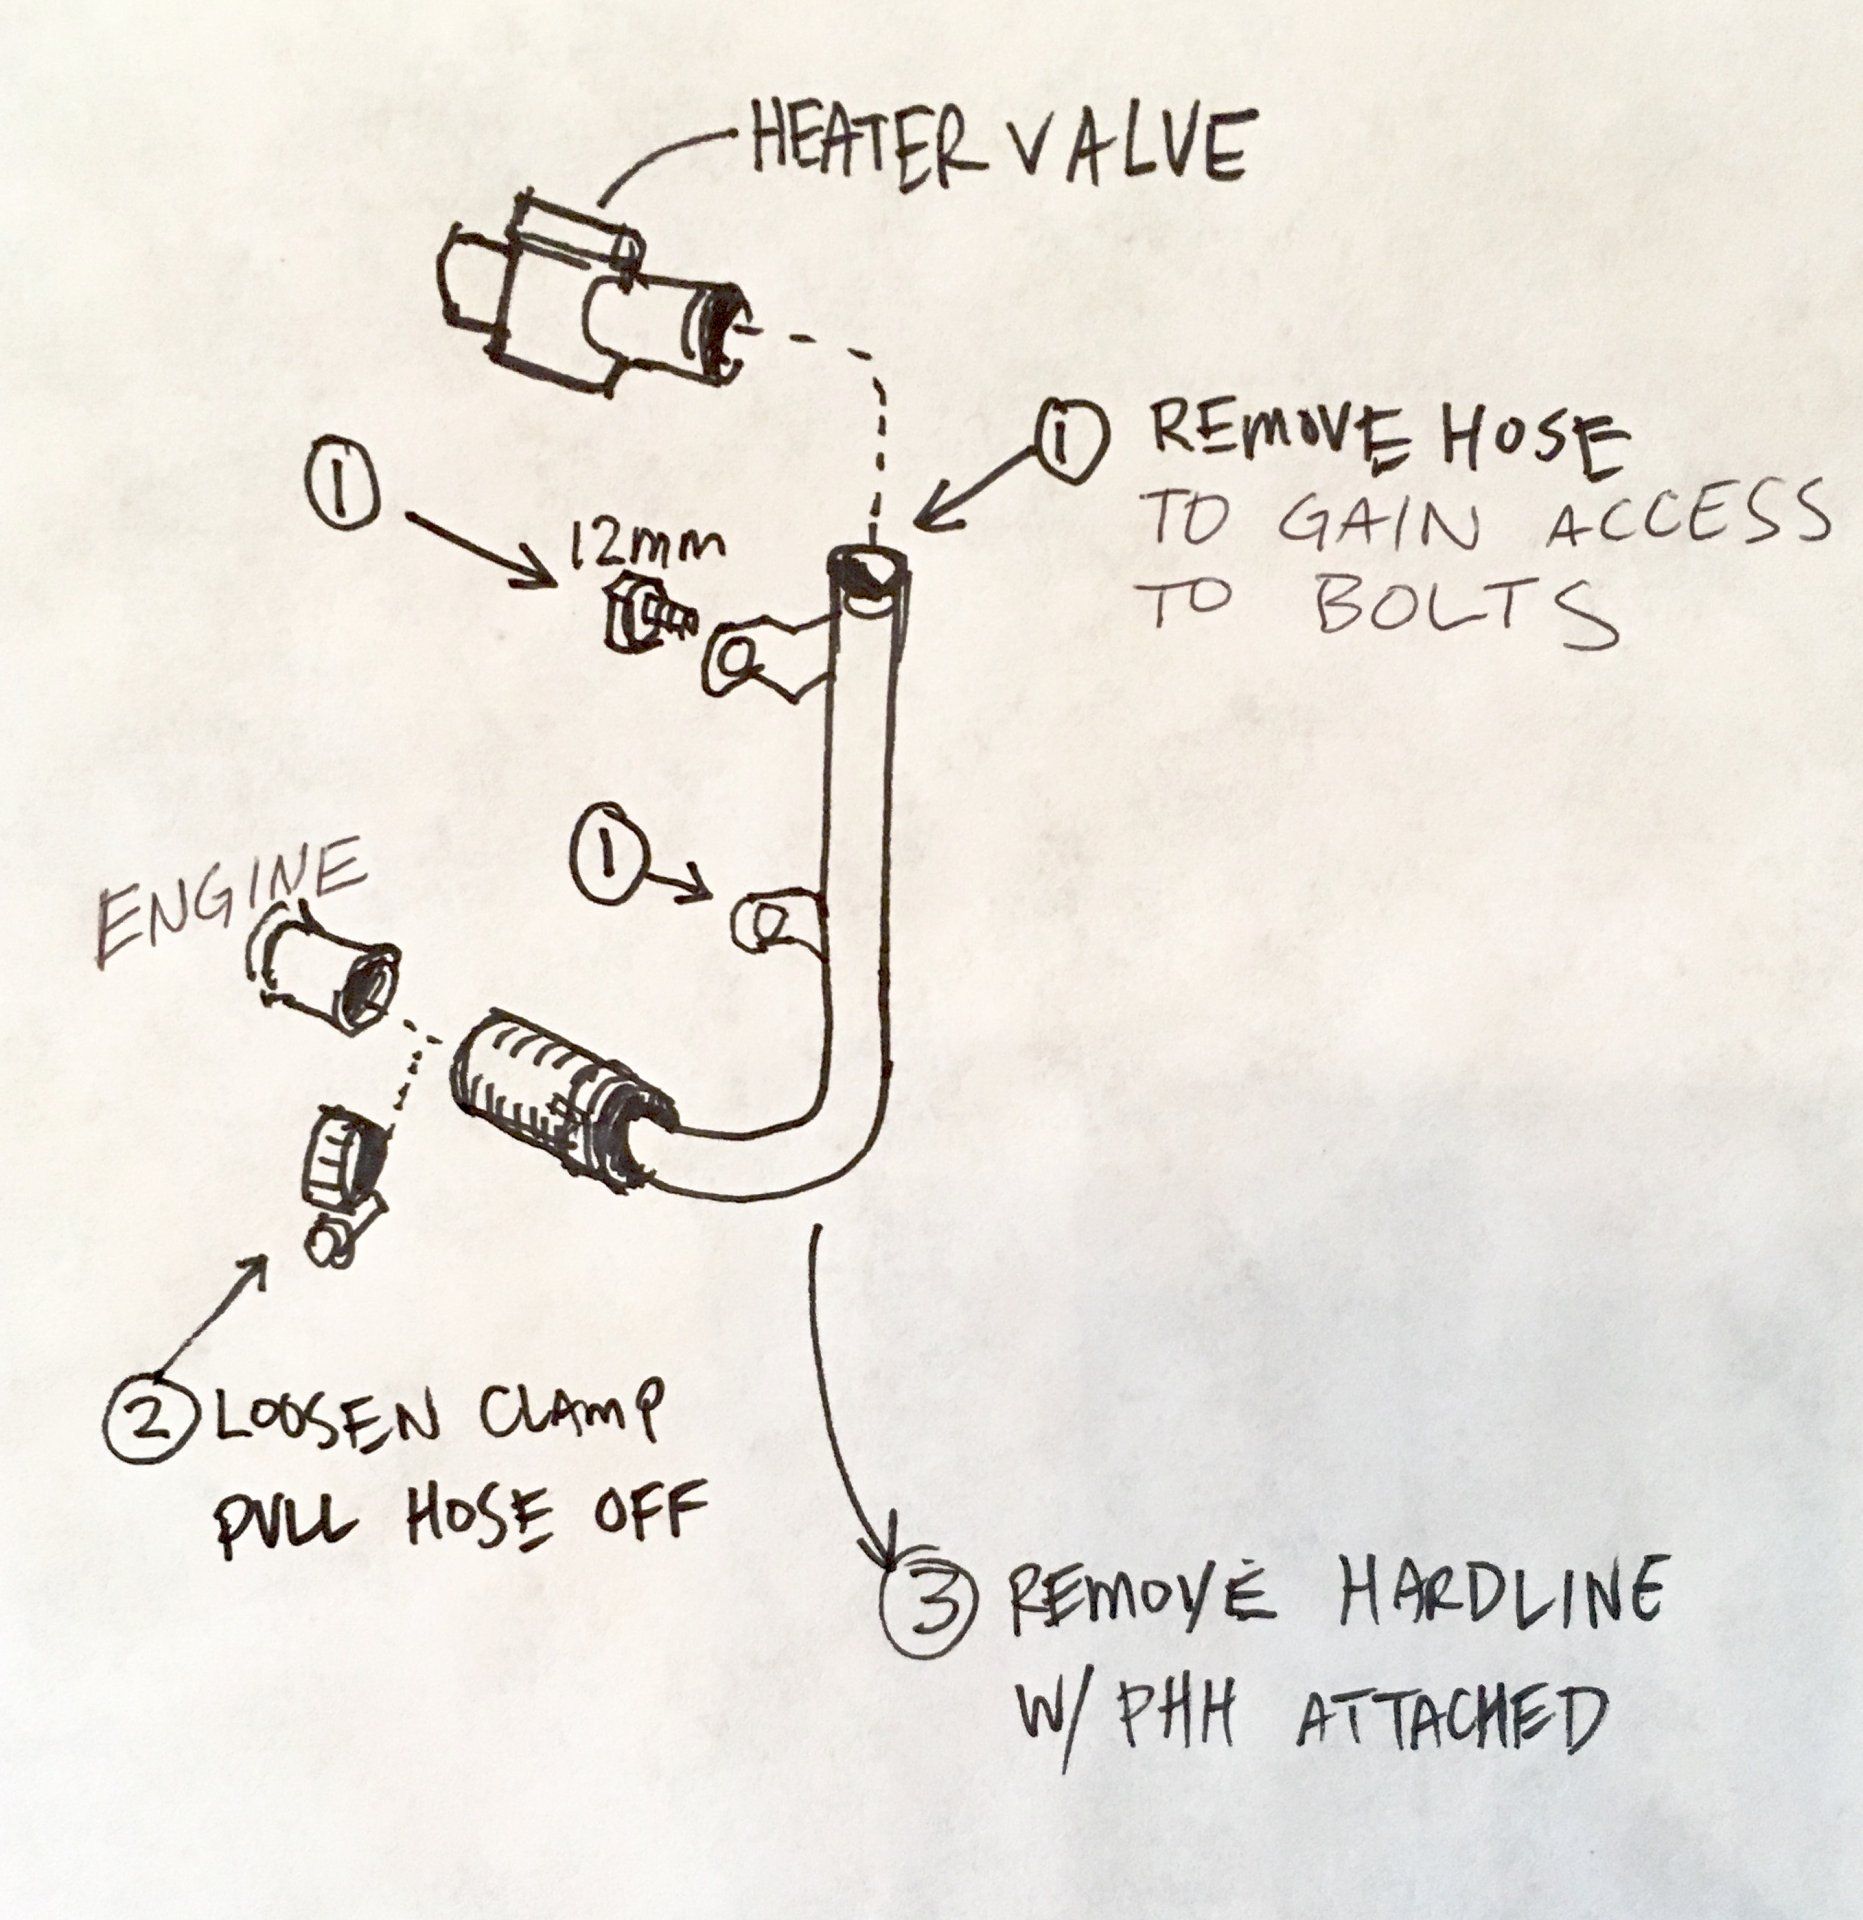 HEATER VALVE
① REMOVE HOSE
TO GAIN ACCESS
TO BOLTS
①
12mm
①
ENGINE
② LOOSEN CLAMP
PULL HOSE OFF
③ REMOVE HARDLINE
W/ PHH ATTACHED